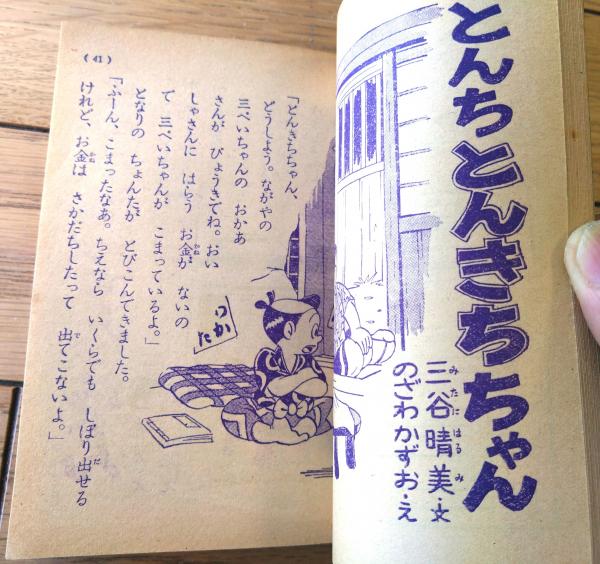 とんちとんきちちゃん
三谷晴美・文
みたにはるみ
のざわかずお・え
「とんきちちゃん、
どうしよう。ながやの
三ぺいちゃんの おかあ
さんが びょうきでね。おい
しゃさんに はらう お金が ないの
かね
て 三ぺいちゃんが こまっているよ。」
となりの ちょんたが とびこんできました。
「ふーん、こまったなあ。ちえなら いくらでも しぼり出せる
だ
けれど、お金は さかだちしたって 出てこないよ。」
かね
で
(41)